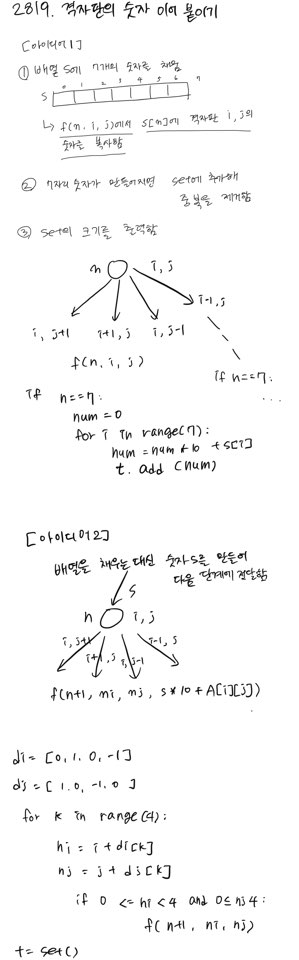 2819. 격자판의 숫자 이어 붙이기
[아이디어1]
① 배열 S에 7개의 숫자를 채움
0 1 2 3 4 5 6 7
S
↳ f(n, i, j)에서 S[n]에 격자판 i, j의
숫자를 복사함
② 7자리 숫자가 만들어지면 set에 추가해
중복을 제거함
③ set의 크기를 출력함
n i, j
i, j+1 i+1, j i, j-1 i-1, j
f(n, i, j)
if n==7:
...
if n==7:
num = 0
for i in range(7):
num = num * 10 + S[i]
t. add (num)
[아이디어2]
배열을 채우는 대신 숫자 S를 만들어
다음 단계에 전달함
S
n i, j
i, j+1 i+1, j i, j-1 i-1, j
f(n+1, ni, nj, s * 10 + A[i][j])
di = [0, 1. 0, -1]
dj = [ 1. 0, -1. 0 ]
for k in range(4):
ni = i + di[k]
nj = j + dj[k]
if 0 <= ni < 4 and 0 ≤ nj 4:
f( n+1, ni, nj)
t = set()